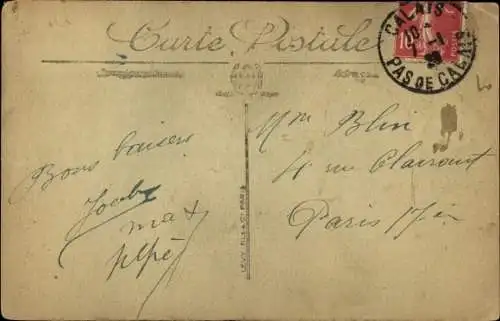 Carte Postale
CALAIS
PAS DE CALAIS
Bons baisers
max
pépé
Mme Blin
41 rue Clairaut
Paris 17 e
LEVY FILS & Cie PARIS